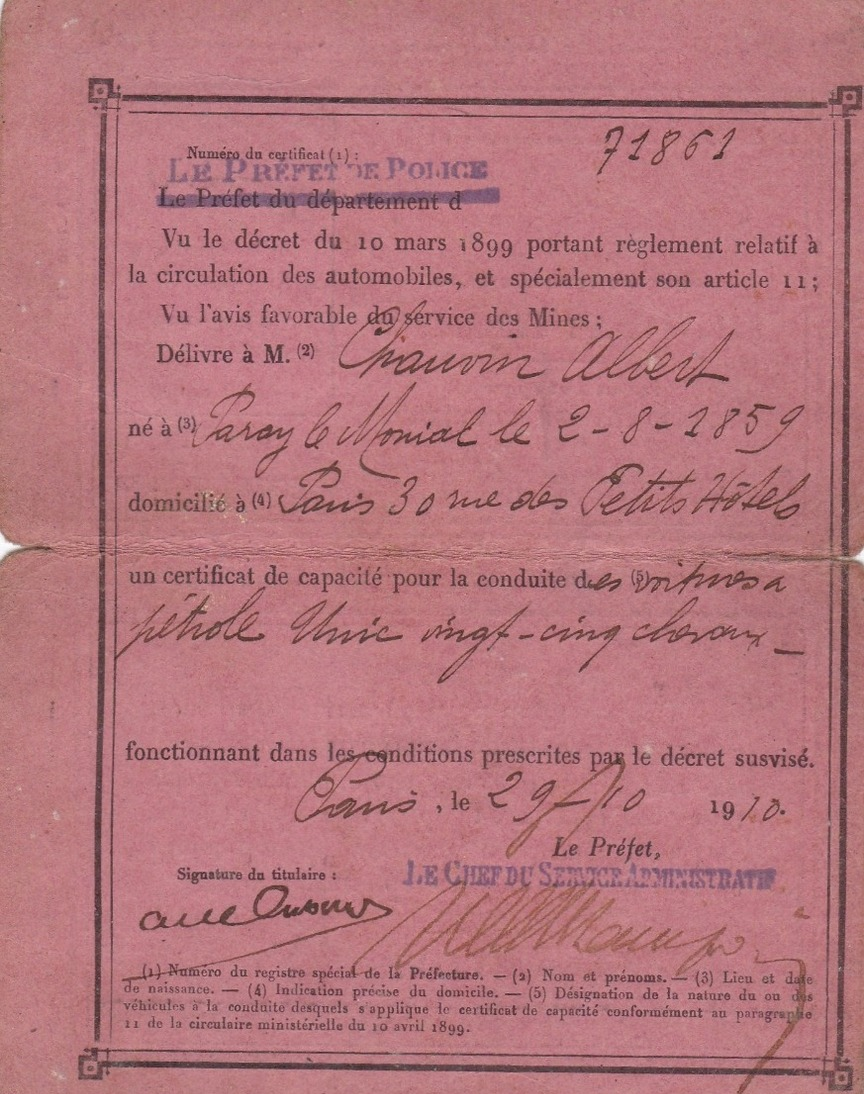 Numéro du certificat (1) : 71861
LE PRÉFET DE POLICE
Le Préfet du département d
Vu le décret du 10 mars 1899 portant règlement relatif à
la circulation des automobiles, et spécialement son article 11;
Vu l'avis favorable du service des Mines ;
Délivre à M. (2) Chauvin Albert
né à (3) Paray le Monial le 2-8-1859
domicilié à (4) Paris 30 rue des Petits Hôtels
un certificat de capacité pour la conduite des (5) voitures a
pétrole Unic vingt-cinq chevaux_
fonctionnant dans les conditions prescrites par le décret susvisé.
Paris, le 29-10 1910.
Le Préfet,
Signature du titulaire : LE CHEF DU SERVICE ADMINISTRATIF
(1) Numéro du registre spécial de la Préfecture. — (2) Nom et prénoms. — (3) Lieu et date
de naissance. — (4) Indication précise du domicile. — (5) Désignation de la nature du ou des
véhicules à la conduite desquels s'applique le certificat de capacité conformément au paragraphe
11 de la circulaire ministérielle du 10 avril 1899.